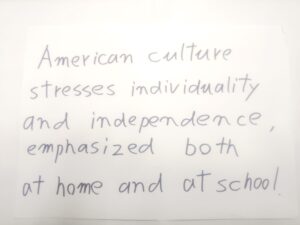 American culture
stresses individuality
and independence,
emphasized both
at home and at school.